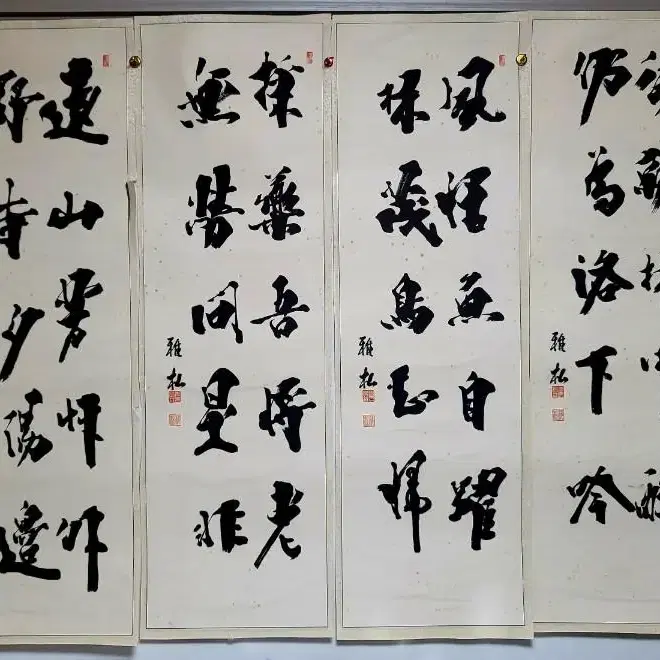 仍為洛下吟
雅松
風恬魚自躍
林茂鳥知歸
雅松
採藥吾將老
無勞問是非
雅松
遠山芳艸外
野寺夕陽邊